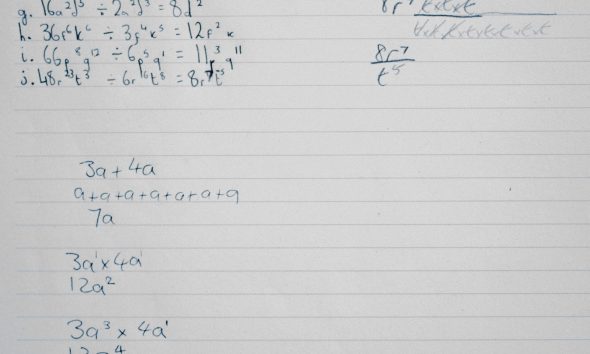 g. 16a²d⁵ ÷ 2a²d³ = 8d²
h. 36r⁶k⁶ ÷ 3r⁴k⁵ = 12r²k
i. 66p⁸q¹² ÷ 6p⁵q¹ = 11p³q¹¹
j. 48r²³t³ ÷ 6r¹⁶t⁸ = 8r⁷t⁵
8r⁷
t⁵
3a + 4a
a+a+a+a+a+a+a
7a
3a¹ × 4a¹
12a²
3a³ × 4a¹